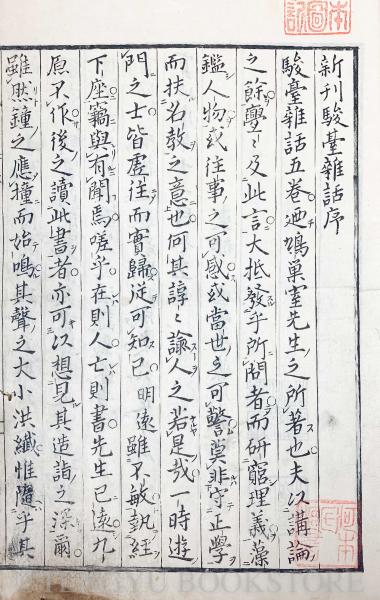 新刊駿臺雜話序
駿臺雜話五卷迺鳩巢室先生之所著也夫以講論
之餘亹々及此言大抵發乎所問者而研窮理義藻
鑑人物或徃事之可感或當世之可警莫非守正學
而扶名教之意也何其諄々諭人之若是哉一時遊
門之士皆虛徃而實歸從可知已明遠雖不敏執經
下座竊與有聞焉嗟乎在則人亡則書先生已遠九
原不作後之讀此書者亦可以想見其造詣之深爾
雖然鐘之應撞而始鳴其聲之大小洪纖惟隨乎其
BOOKSTORE